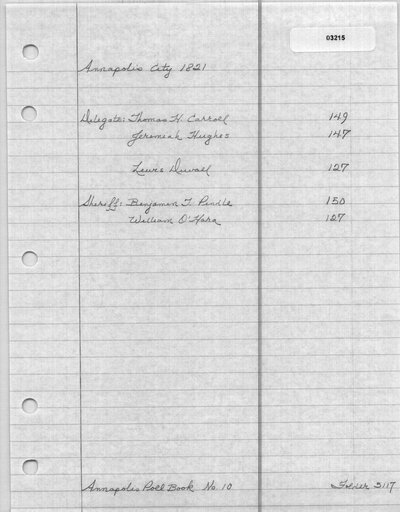 03215
Annapolis City 1821
Delegate: Thomas H. Carroll 149
Jeremiah Hughes 147
Lewis Duvall 127
Sheriff: Benjamin T. Pindle 150
William O'Hara 127
Annapolis Poll Book No. 10
Folder 3117